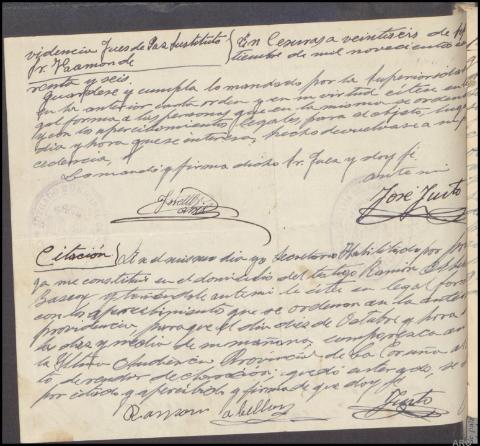 videncia Juez de Paz sustituto } En Cesuras a veintiseis de
Sr. Haamonde tiembre de mil novecientos
renta y seis.
Guardese y cumpla lo mandado por la Superioridad
en la anterior carta orden y en su virtud citese en
gal forma a las personas que en la misma se orden
y con los apercibimientos legales, para el objeto,
dia y hora que se interesa, hecho devuelvase a su
cedencia,
Lo mando y firma dicho Sr. Juez y doy fé
ante mi
José Justo
Citación } En el mismo dia yo Secretario Habilitado por
ga me constituí en el domicilio del testigo Ramón
y teniendole ante mi le cité en legal for
con los apercibimientos que se ordenan en la ante
providencia, para que el dia diez de Octubre y hora
las diez y media de su mañana, comparezca an
la Iltma Audiencia Provincial de La Coruña al
to, quedó enterado, se
por citado y apercibido y firma de que doy fé.
Ramon abellon Justo